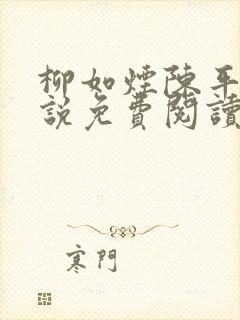 柳如煙陳平
說免費閱讀
寒門